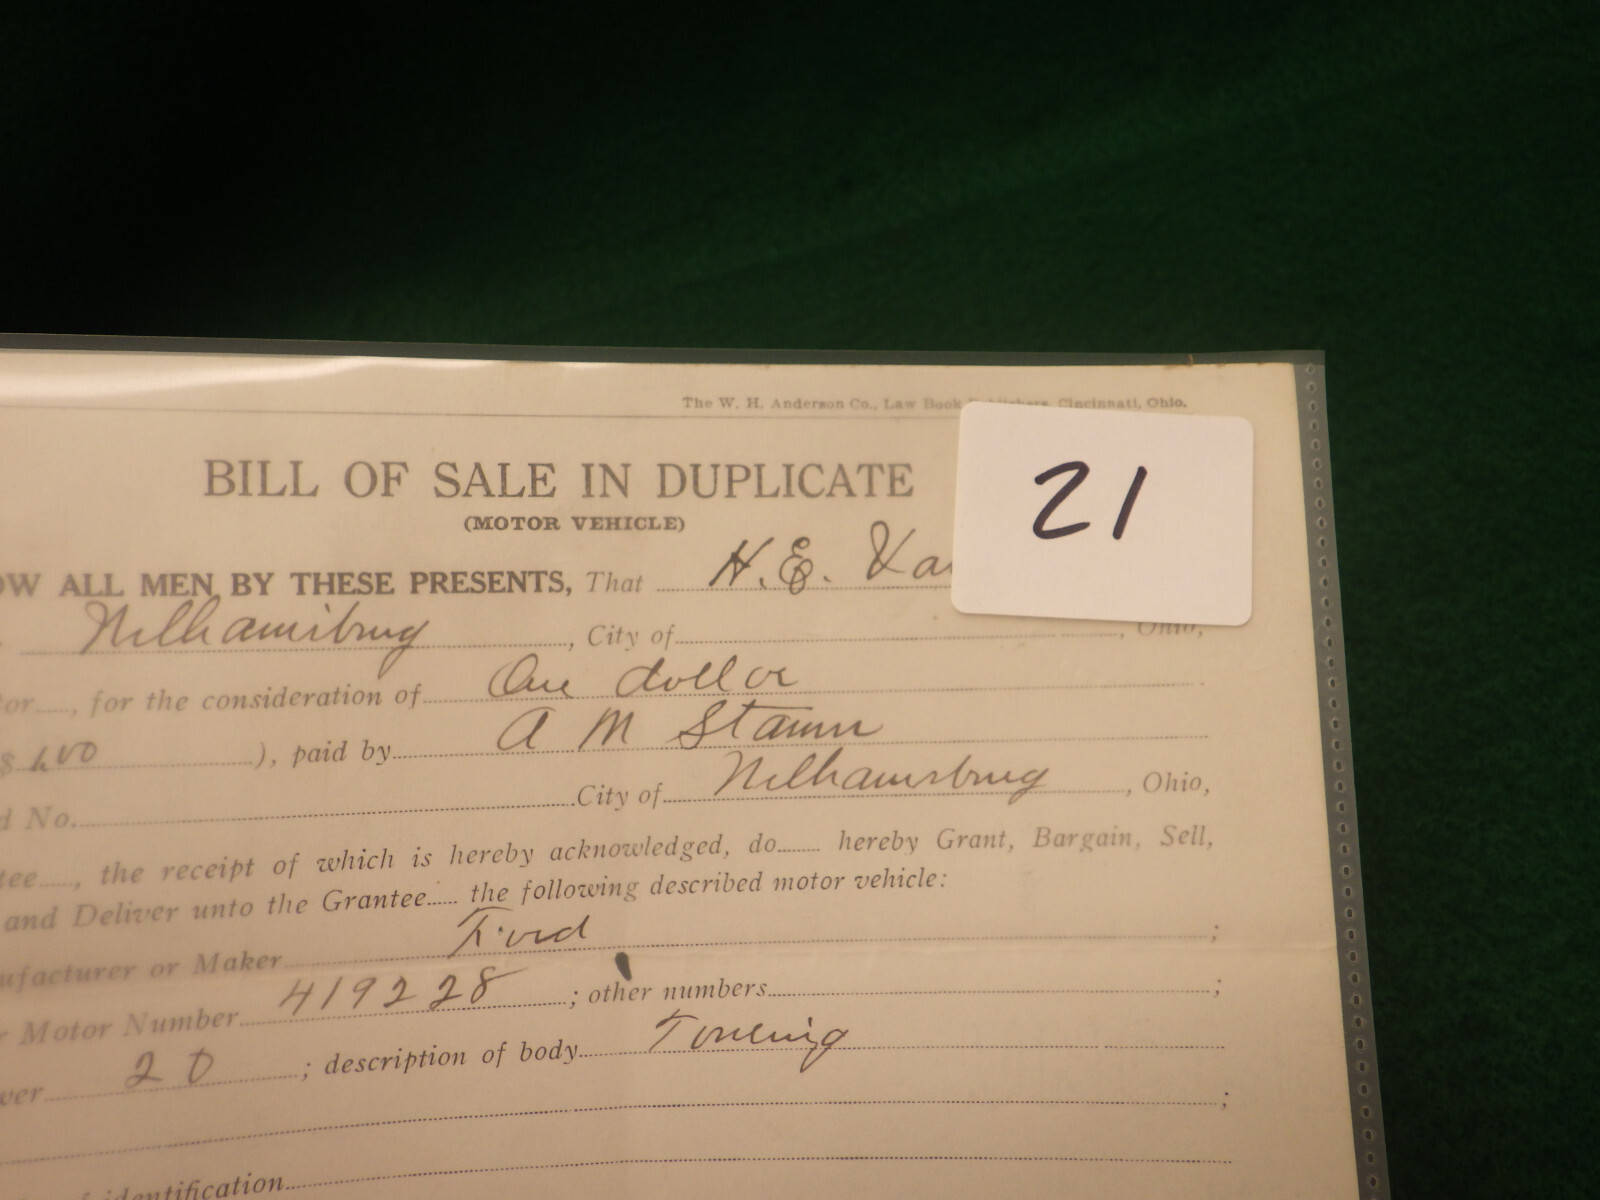 The W. H. Anderson Co., Law Book Publishers, Cincinnati, Ohio.
21
BILL OF SALE IN DUPLICATE
(MOTOR VEHICLE)
OW ALL MEN BY THESE PRESENTS, That H. E. Va
Williamsburg, City of, Ohio,
tor, for the consideration of One dollar
$ 1.00 ), paid by A M Stamm
d No. City of Williamsburg, Ohio,
tee, the receipt of which is hereby acknowledged, do hereby Grant, Bargain, Sell,
and Deliver unto the Grantee the following described motor vehicle:
nufacturer or Maker Ford ;
r Motor Number 419228 ; other numbers ;
wer 20 ; description of body Touring
;
of identification